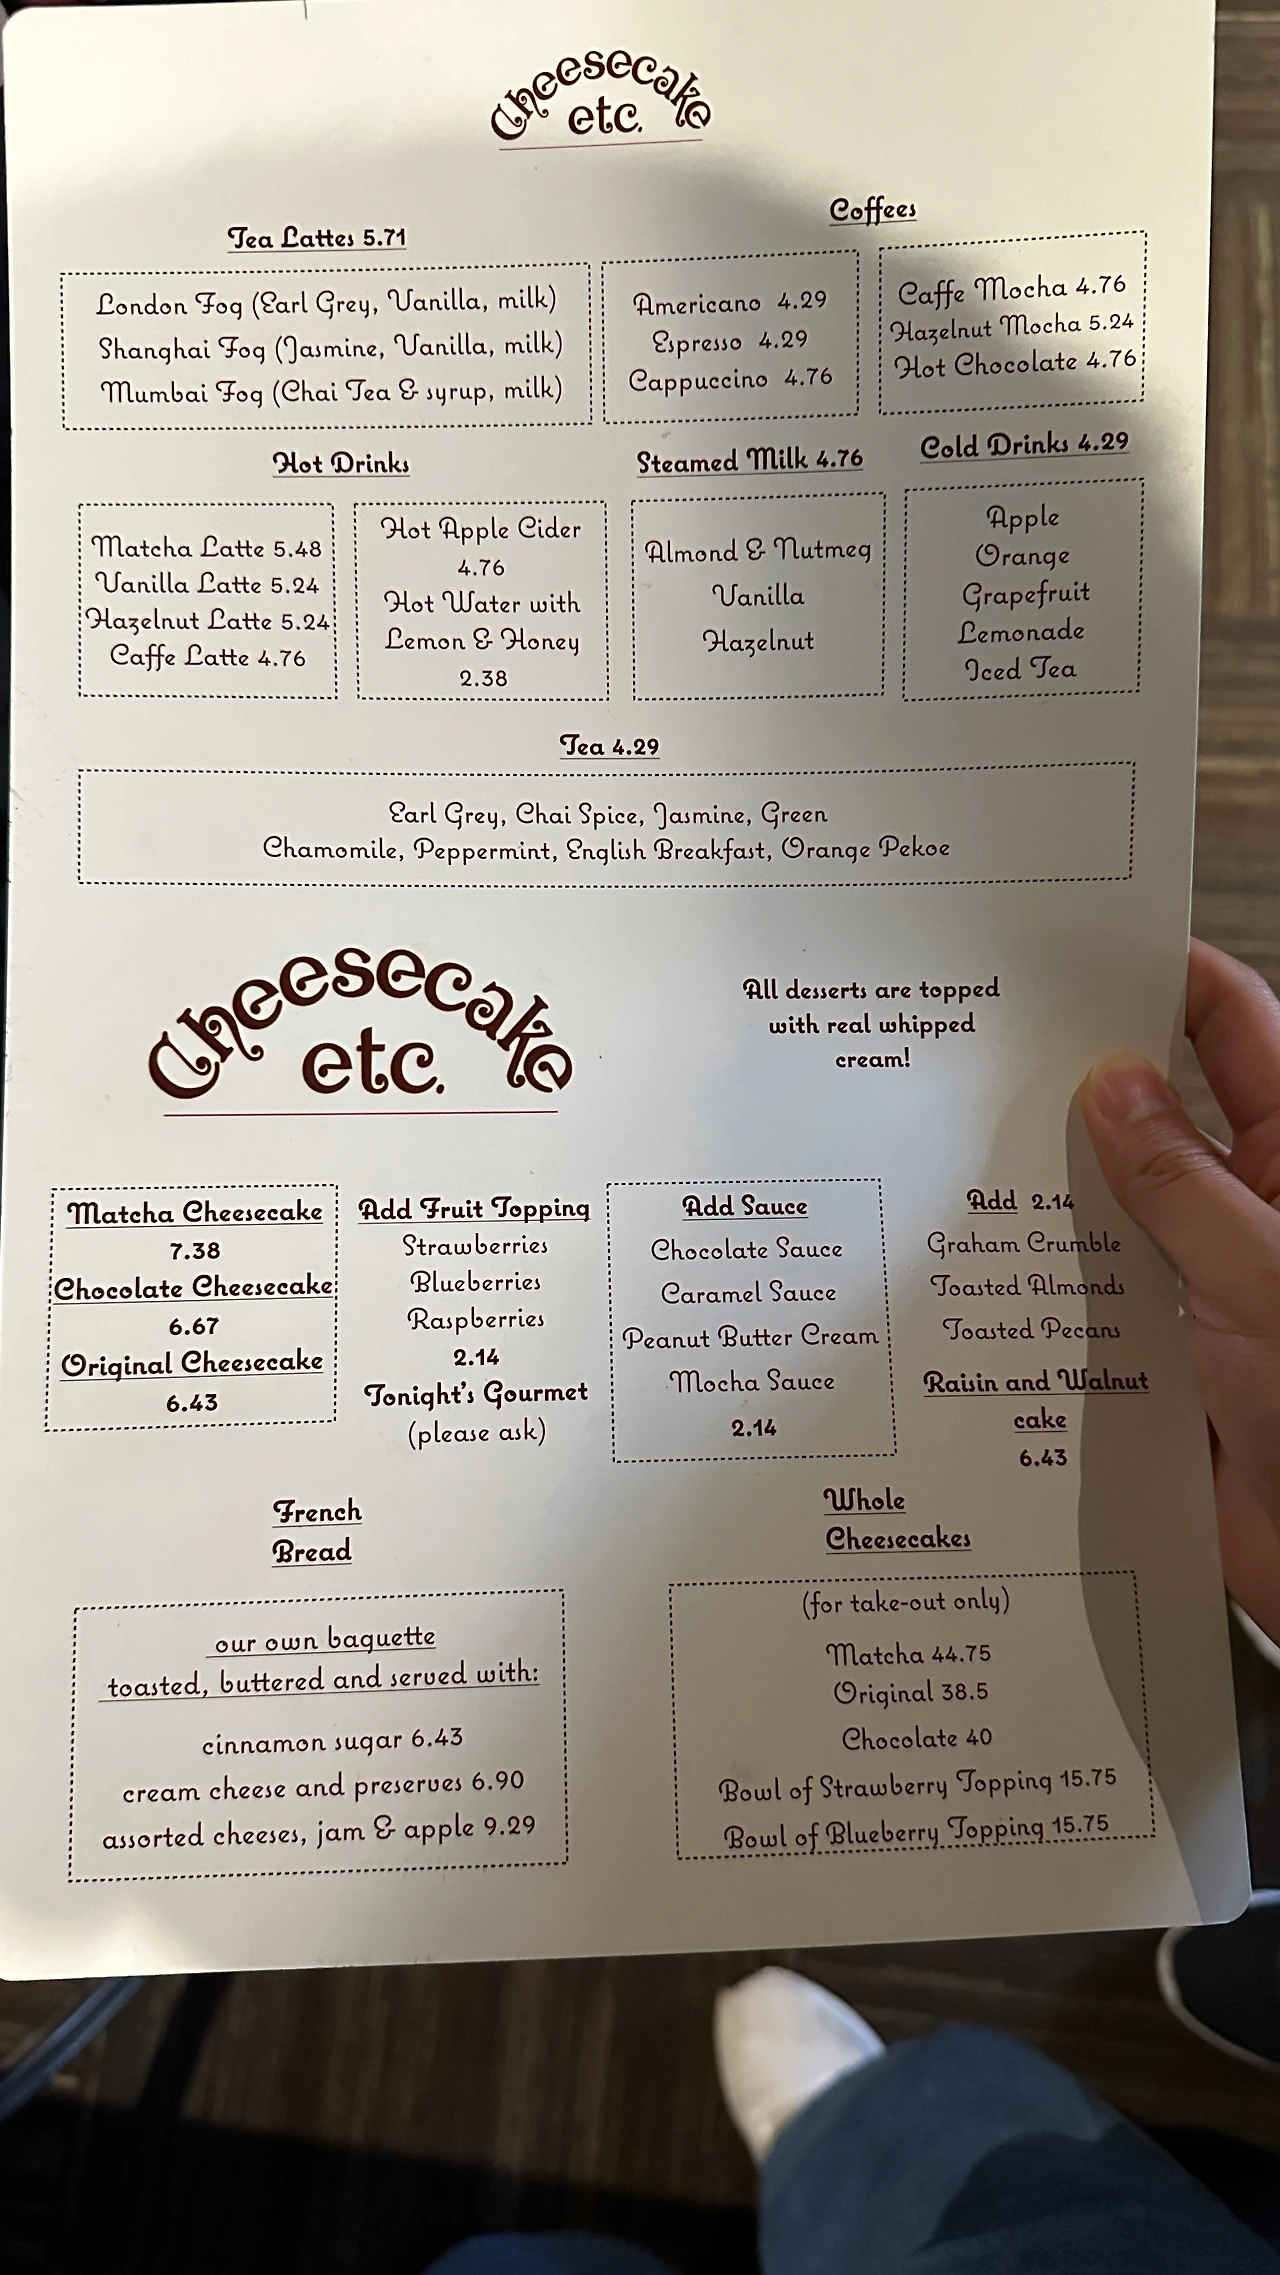 Cheesecake
etc.
Tea Lattes 5.71
London Fog (Earl Grey, Vanilla, milk)
Shanghai Fog (Jasmine, Vanilla, milk)
Mumbai Fog (Chai Tea & syrup, milk)
Coffees
Americano 4.29
Espresso 4.29
Cappuccino 4.76
Caffe Mocha 4.76
Hazelnut Mocha 5.24
Hot Chocolate 4.76
Hot Drinks
Matcha Latte 5.48
Vanilla Latte 5.24
Hazelnut Latte 5.24
Caffe Latte 4.76
Hot Apple Cider
4.76
Hot Water with
Lemon & Honey
2.38
Steamed Milk 4.76
Almond & Nutmeg
Vanilla
Hazelnut
Cold Drinks 4.29
Apple
Orange
Grapefruit
Lemonade
Iced Tea
Tea 4.29
Earl Grey, Chai Spice, Jasmine, Green
Chamomile, Peppermint, English Breakfast, Orange Pekoe
Cheesecake
etc.
All desserts are topped
with real whipped
cream!
Matcha Cheesecake
7.38
Chocolate Cheesecake
6.67
Original Cheesecake
6.43
Add Fruit Topping
Strawberries
Blueberries
Raspberries
2.14
Tonight's Gourmet
(please ask)
Add Sauce
Chocolate Sauce
Caramel Sauce
Peanut Butter Cream
Mocha Sauce
2.14
Add 2.14
Graham Crumble
Toasted Almonds
Toasted Pecans
Raisin and Walnut
cake
6.43
French
Bread
our own baguette
toasted, buttered and served with:
cinnamon sugar 6.43
cream cheese and preserves 6.90
assorted cheeses, jam & apple 9.29
Whole
Cheesecakes
(for take-out only)
Matcha 44.75
Original 38.5
Chocolate 40
Bowl of Strawberry Topping 15.75
Bowl of Blueberry Topping 15.75